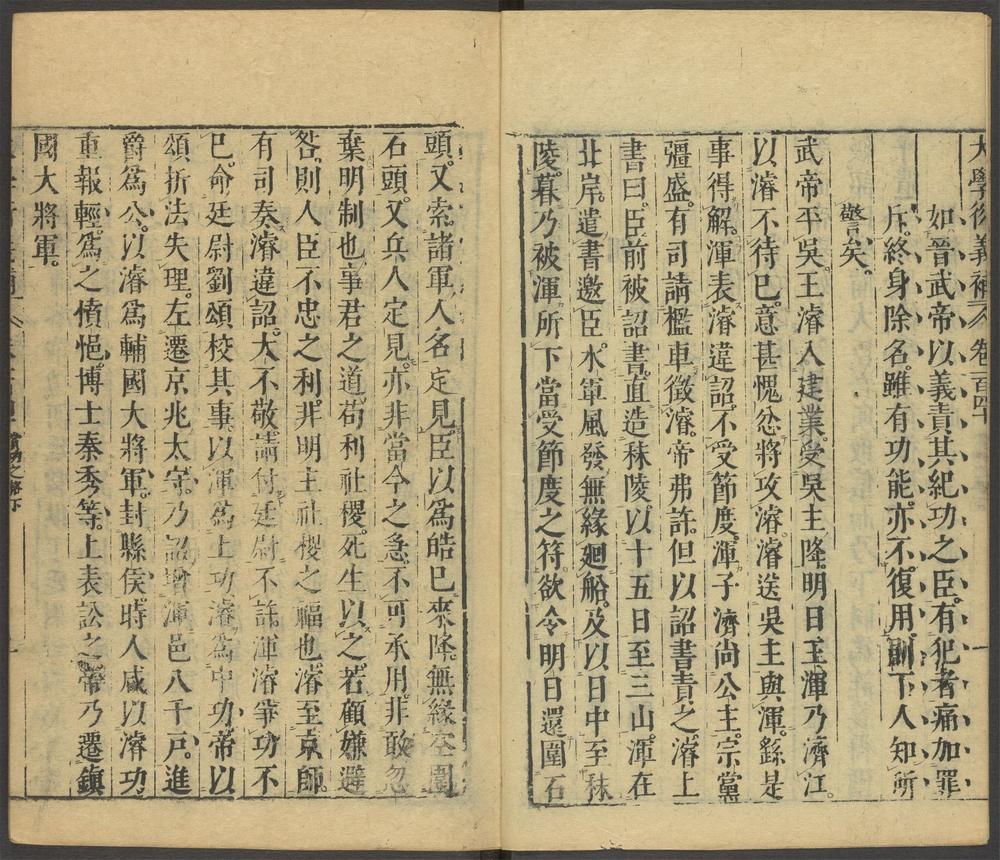 大學衍義補 卷百四十
如晉武帝以義責其紀功之臣有犯者痛加罪
斥終身除名雖有功能亦不復用則下人知所
警矣
武帝平吳王濬入建業受吳主降明日王渾乃濟江
以濬不待已意甚愧忿將攻濬濬送吳主與渾繇是
事得解渾表濬違詔不受節度渾子濟尚公主宗黨
彊盛有司請檻車徵濬帝弗許但以詔書責之濬上
書曰臣前被詔書直造秣陵以十五日至三山渾在
北岸遣書邀臣水軍風發無緣廻船及以日中至秣
陵暮乃被渾所下當受節度之符欲令明日還圍石
頭又索諸軍人名定見臣以為皓已來降無緣空圍
石頭又兵人定見亦非當今之急不可承用非敢忽
棄明制也事君之道苟利社稷死生以之若顧嫌避
咎則人臣不忠之利非明主社稷之福也濬至京師
有司奏濬違詔大不敬請付廷尉不許渾濬爭功不
已命廷尉劉頌校其事以渾為上功濬為中功帝以
頌折法失理左遷京兆太守乃詔增渾邑八千戸進
爵為公以濬為輔國大將軍封縣侯時人咸以濬功
重報輕為之憤悒博士秦秀等上表訟之帝乃遷鎮
國大將軍
賞功之格下